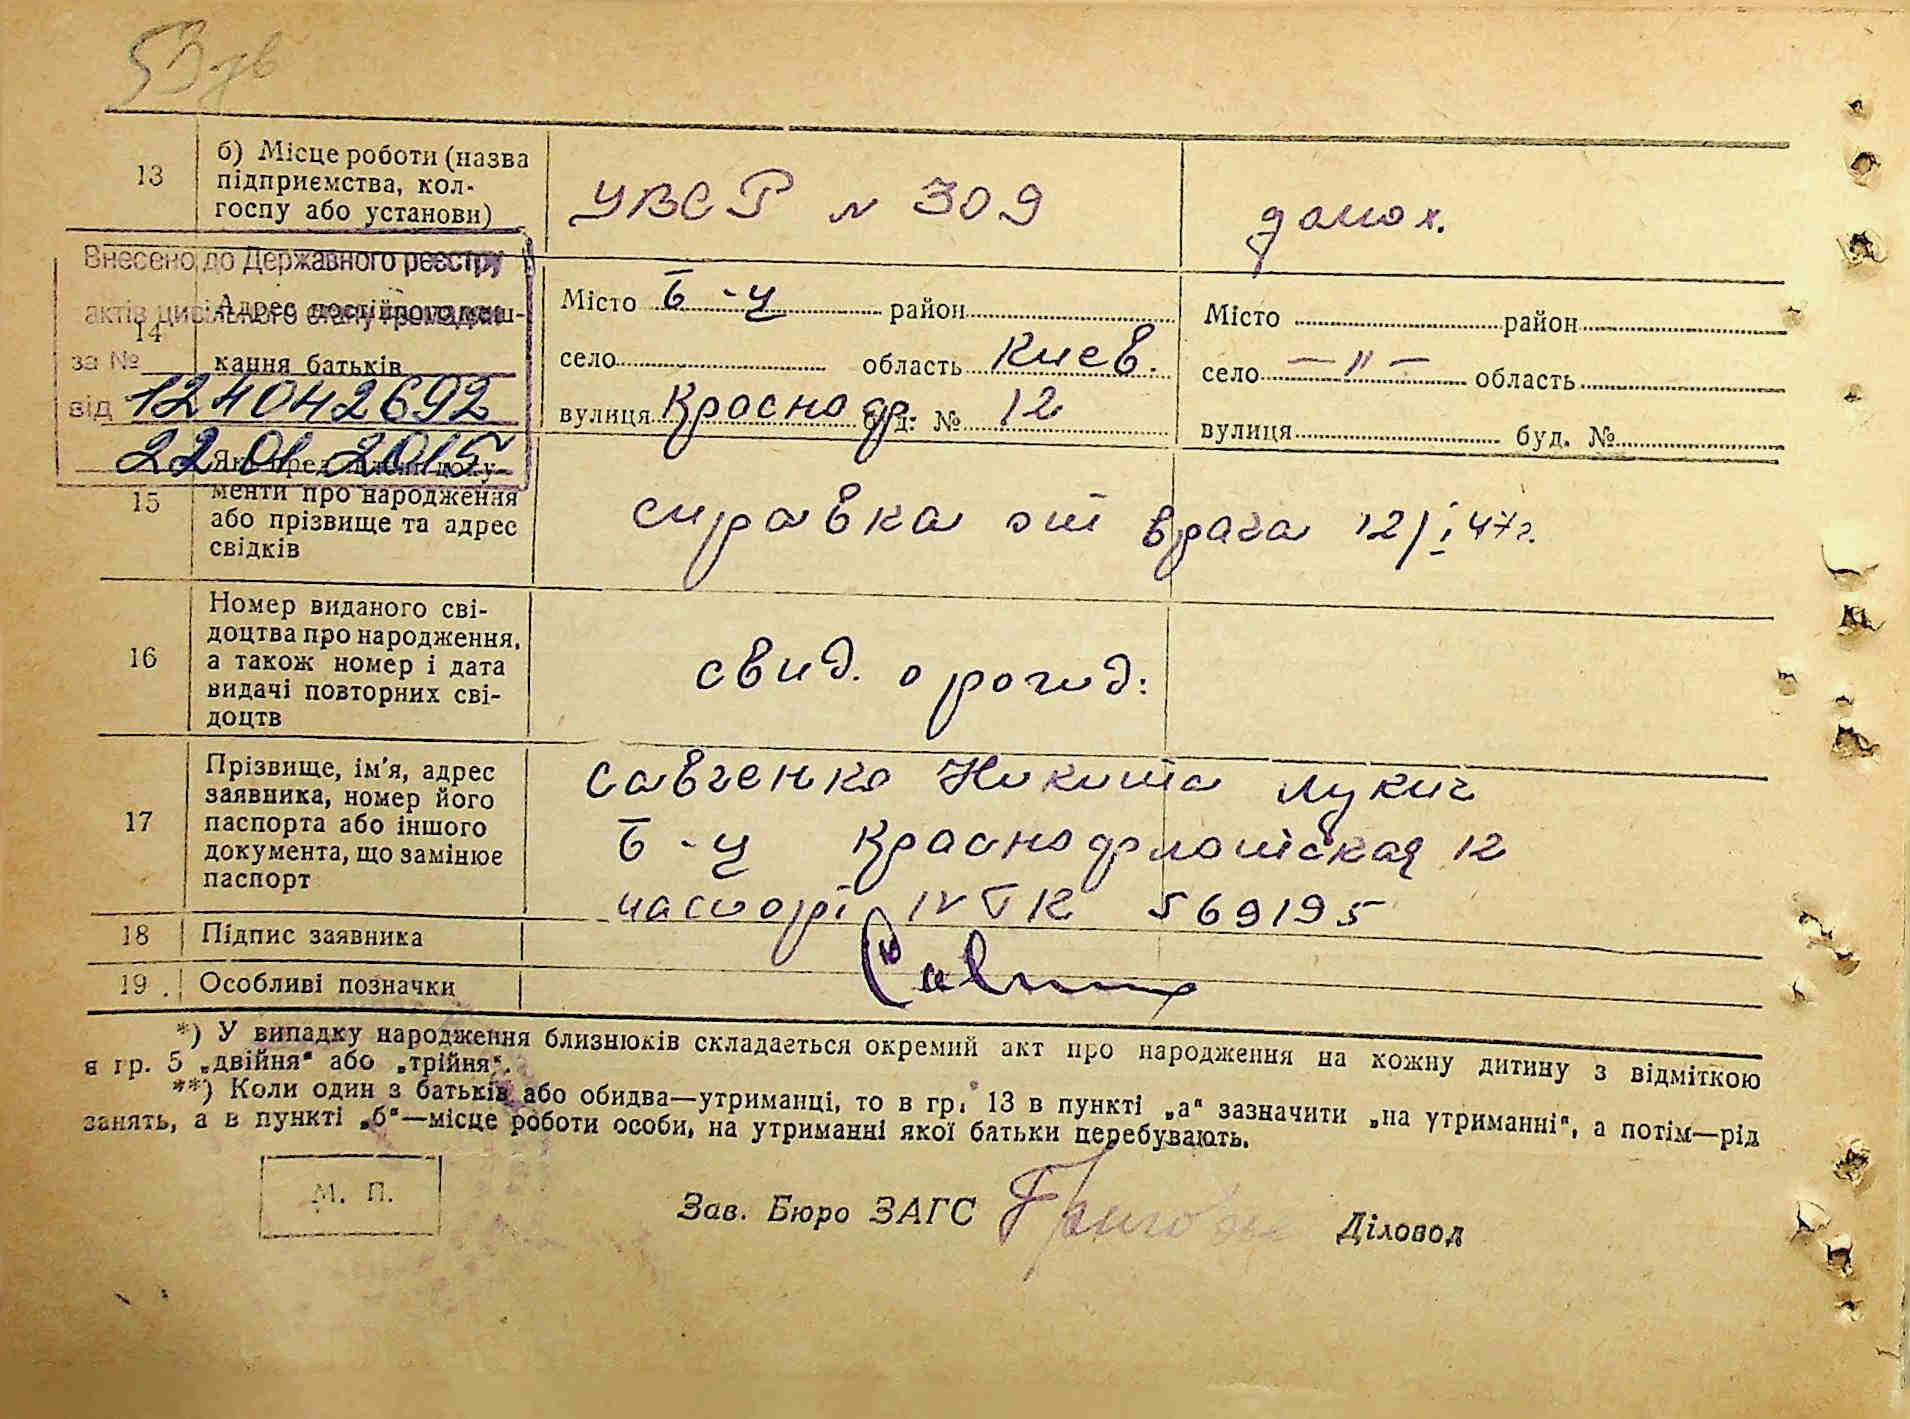 53 зв
13
б) Місце роботи (назва
підприємства, кол-
госпу або установи)
УВСР № 309
домох.
Внесено до Державного реєстру
актів цивільного стану громадян
за №
від 124042692
22 01 2015
14
Адрес постійного меш-
кання батьків
Місто Б-Ц район
село область Киев.
вулиця Красноар. буд. № 12
Місто район
село — " — область
вулиця буд. №
15
Які пред'явлені доку-
менти про народження
або прізвище та адрес
свідків
справка от врача 12/I 47г.
16
Номер виданого сві-
доцтва про народження,
а також номер і дата
видачі повторних сві-
доцтв
свид. о рожд.
17
Прізвище, ім'я, адрес
заявника, номер його
паспорта або іншого
документа, що замінює
паспорт
Савченко Никита Лукич
Б-Ц 12
паспорт IV 569195
18 Підпис заявника
19 Особливі позначки
*) У випадку народження близнюків складається окремий акт про народження на кожну дитину з відміткою
в гр. 5 „двійня“ або „трійня“.
**) Коли один з батьків або обидва—утриманці, то в гр. 13 в пункті „а“ зазначити „на утриманні“, а потім—рід
занять, а в пункті „б“—місце роботи особи, на утриманні якої батьки перебувають.
М. П.
Зав. Бюро ЗАГС
Діловод